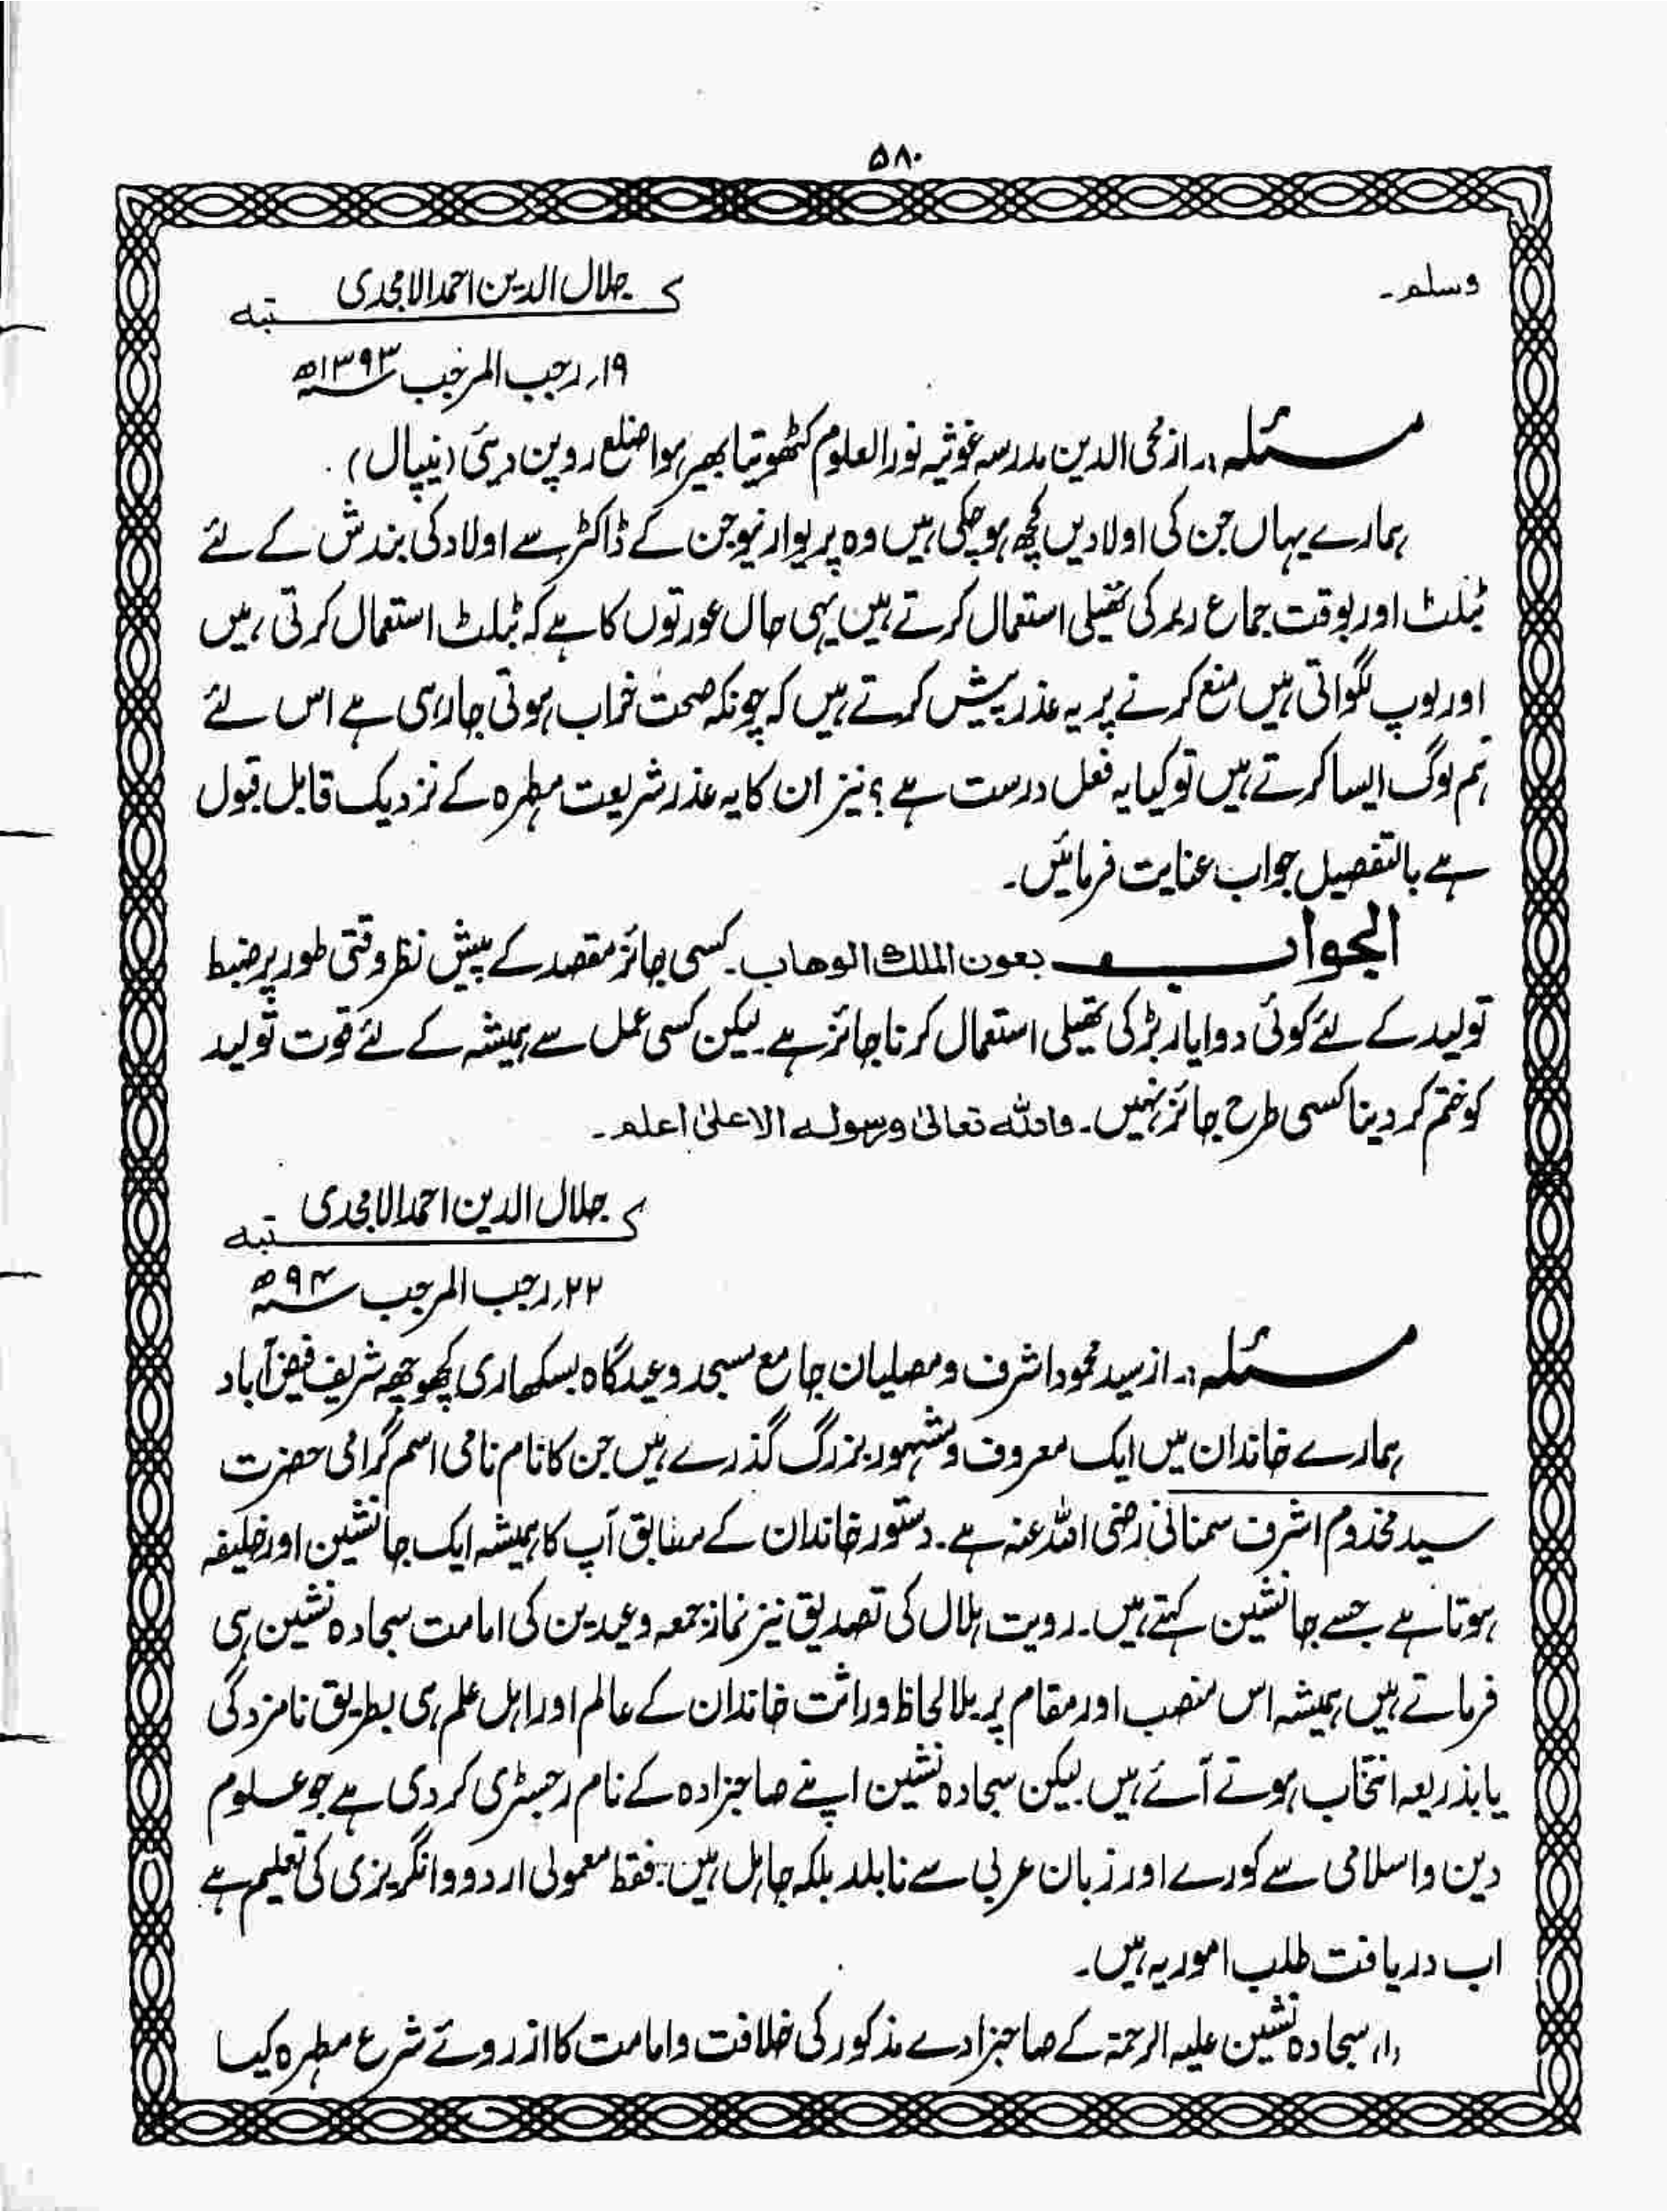 ۵۸۰
وسلم۔
کتبہ جلال الدین احمد الامجدی
۱۹؍ رجب المرجب ۱۳۹۳ھ
مسئلہ:۔ از محی الدین مدرسہ غوثیہ نور العلوم کٹھوتیا بھیرہوا ضلع روپن دیہی (نیپال)۔
ہمارے یہاں جن کی اولادیں کچھ ہوچکی ہیں وہ پریوار نیوجن کے ڈاکٹر سے اولاد کی بندش کے لئے
ٹبلٹ اور بوقت جماع ربر کی تھیلی استعمال کرتے ہیں یہی حال عورتوں کا ہے کہ ٹبلٹ استعمال کرتی ہیں
اور لوپ لگواتی ہیں منع کرنے پر یہ عذر پیش کرتے ہیں کہ چونکہ صحت خراب ہوتی جارہی ہے اس لئے
ہم لوگ ایسا کرتے ہیں تو کیا یہ فعل درست ہے؟ نیز ان کا یہ عذر شریعت مطہرہ کے نزدیک قابل قبول
ہے بالتفصیل جواب عنایت فرمائیں۔
الجواب بعون الملك الوهاب۔ کسی جائز مقصد کے پیش نظر وقتی طور پر ضبط
تولید کے لئے کوئی دوا یا ربڑ کی تھیلی استعمال کرنا جائز ہے۔ لیکن کسی عمل سے ہمیشہ کے لئے قوت تولید
کو ختم کردینا کسی طرح جائز نہیں۔ واللہ تعالیٰ ورسولہ الاعلیٰ اعلم۔
کتبہ جلال الدین احمد الامجدی
۲۲؍ رجب المرجب ۹۴ھ
مسئلہ:۔ از سید محمود اشرف و مصلیان جامع مسجد و عیدگاہ بسکھاری کچھوچھہ شریف فیض آباد
ہمارے خاندان میں ایک معروف و مشہور بزرگ گذرے ہیں جن کا نام نامی اسم گرامی حضرت
سید مخدوم اشرف سمنانی رضی اللہ عنہ ہے۔ دستور خاندان کے مطابق آپ کا ہمیشہ ایک جانشین اور خلیفہ
ہوتا ہے جسے جانشین کہتے ہیں۔ رویت ہلال کی تصدیق نیز نماز جمعہ و عیدین کی امامت سجادہ نشین ہی
فرماتے ہیں ہمیشہ اس منصب اور مقام پر بلا لحاظ وراثت خاندان کے عالم اور اہل علم ہی بطریق نامزدگی
یا بذریعہ انتخاب ہوتے آئے ہیں لیکن سجادہ نشین اپنے صاحبزادہ کے نام رجسٹری کردی ہے جو علوم
دین و اسلامی سے کورے اور زبان عربی سے نابلد بلکہ جاہل ہیں۔ فقط معمولی اردو و انگریزی کی تعلیم ہے
اب دریافت طلب امور یہ ہیں۔
(۱) سجادہ نشین علیہ الرحمۃ کے صاحبزادے مذکور کی خلافت و امامت کا از روئے شرع مطہرہ کیا